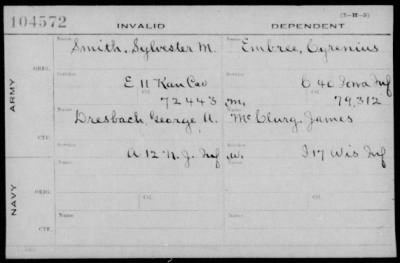 104572 INVALID DEPENDENT (3-H-3)
ARMY ORIG. Name Smith, Sylvester M. Embree, Cyrenius
Service E 11 Kan Cav C 40 Iowa Inf
Ctf. 72443 m, 79,312
CTF. Dresbach, George A. McClurg, James
A 12 N. J. Inf w. I 17 Wis Inf
NAVY ORIG. Name Name
Ctf. Ctf.
CTF. Name Name